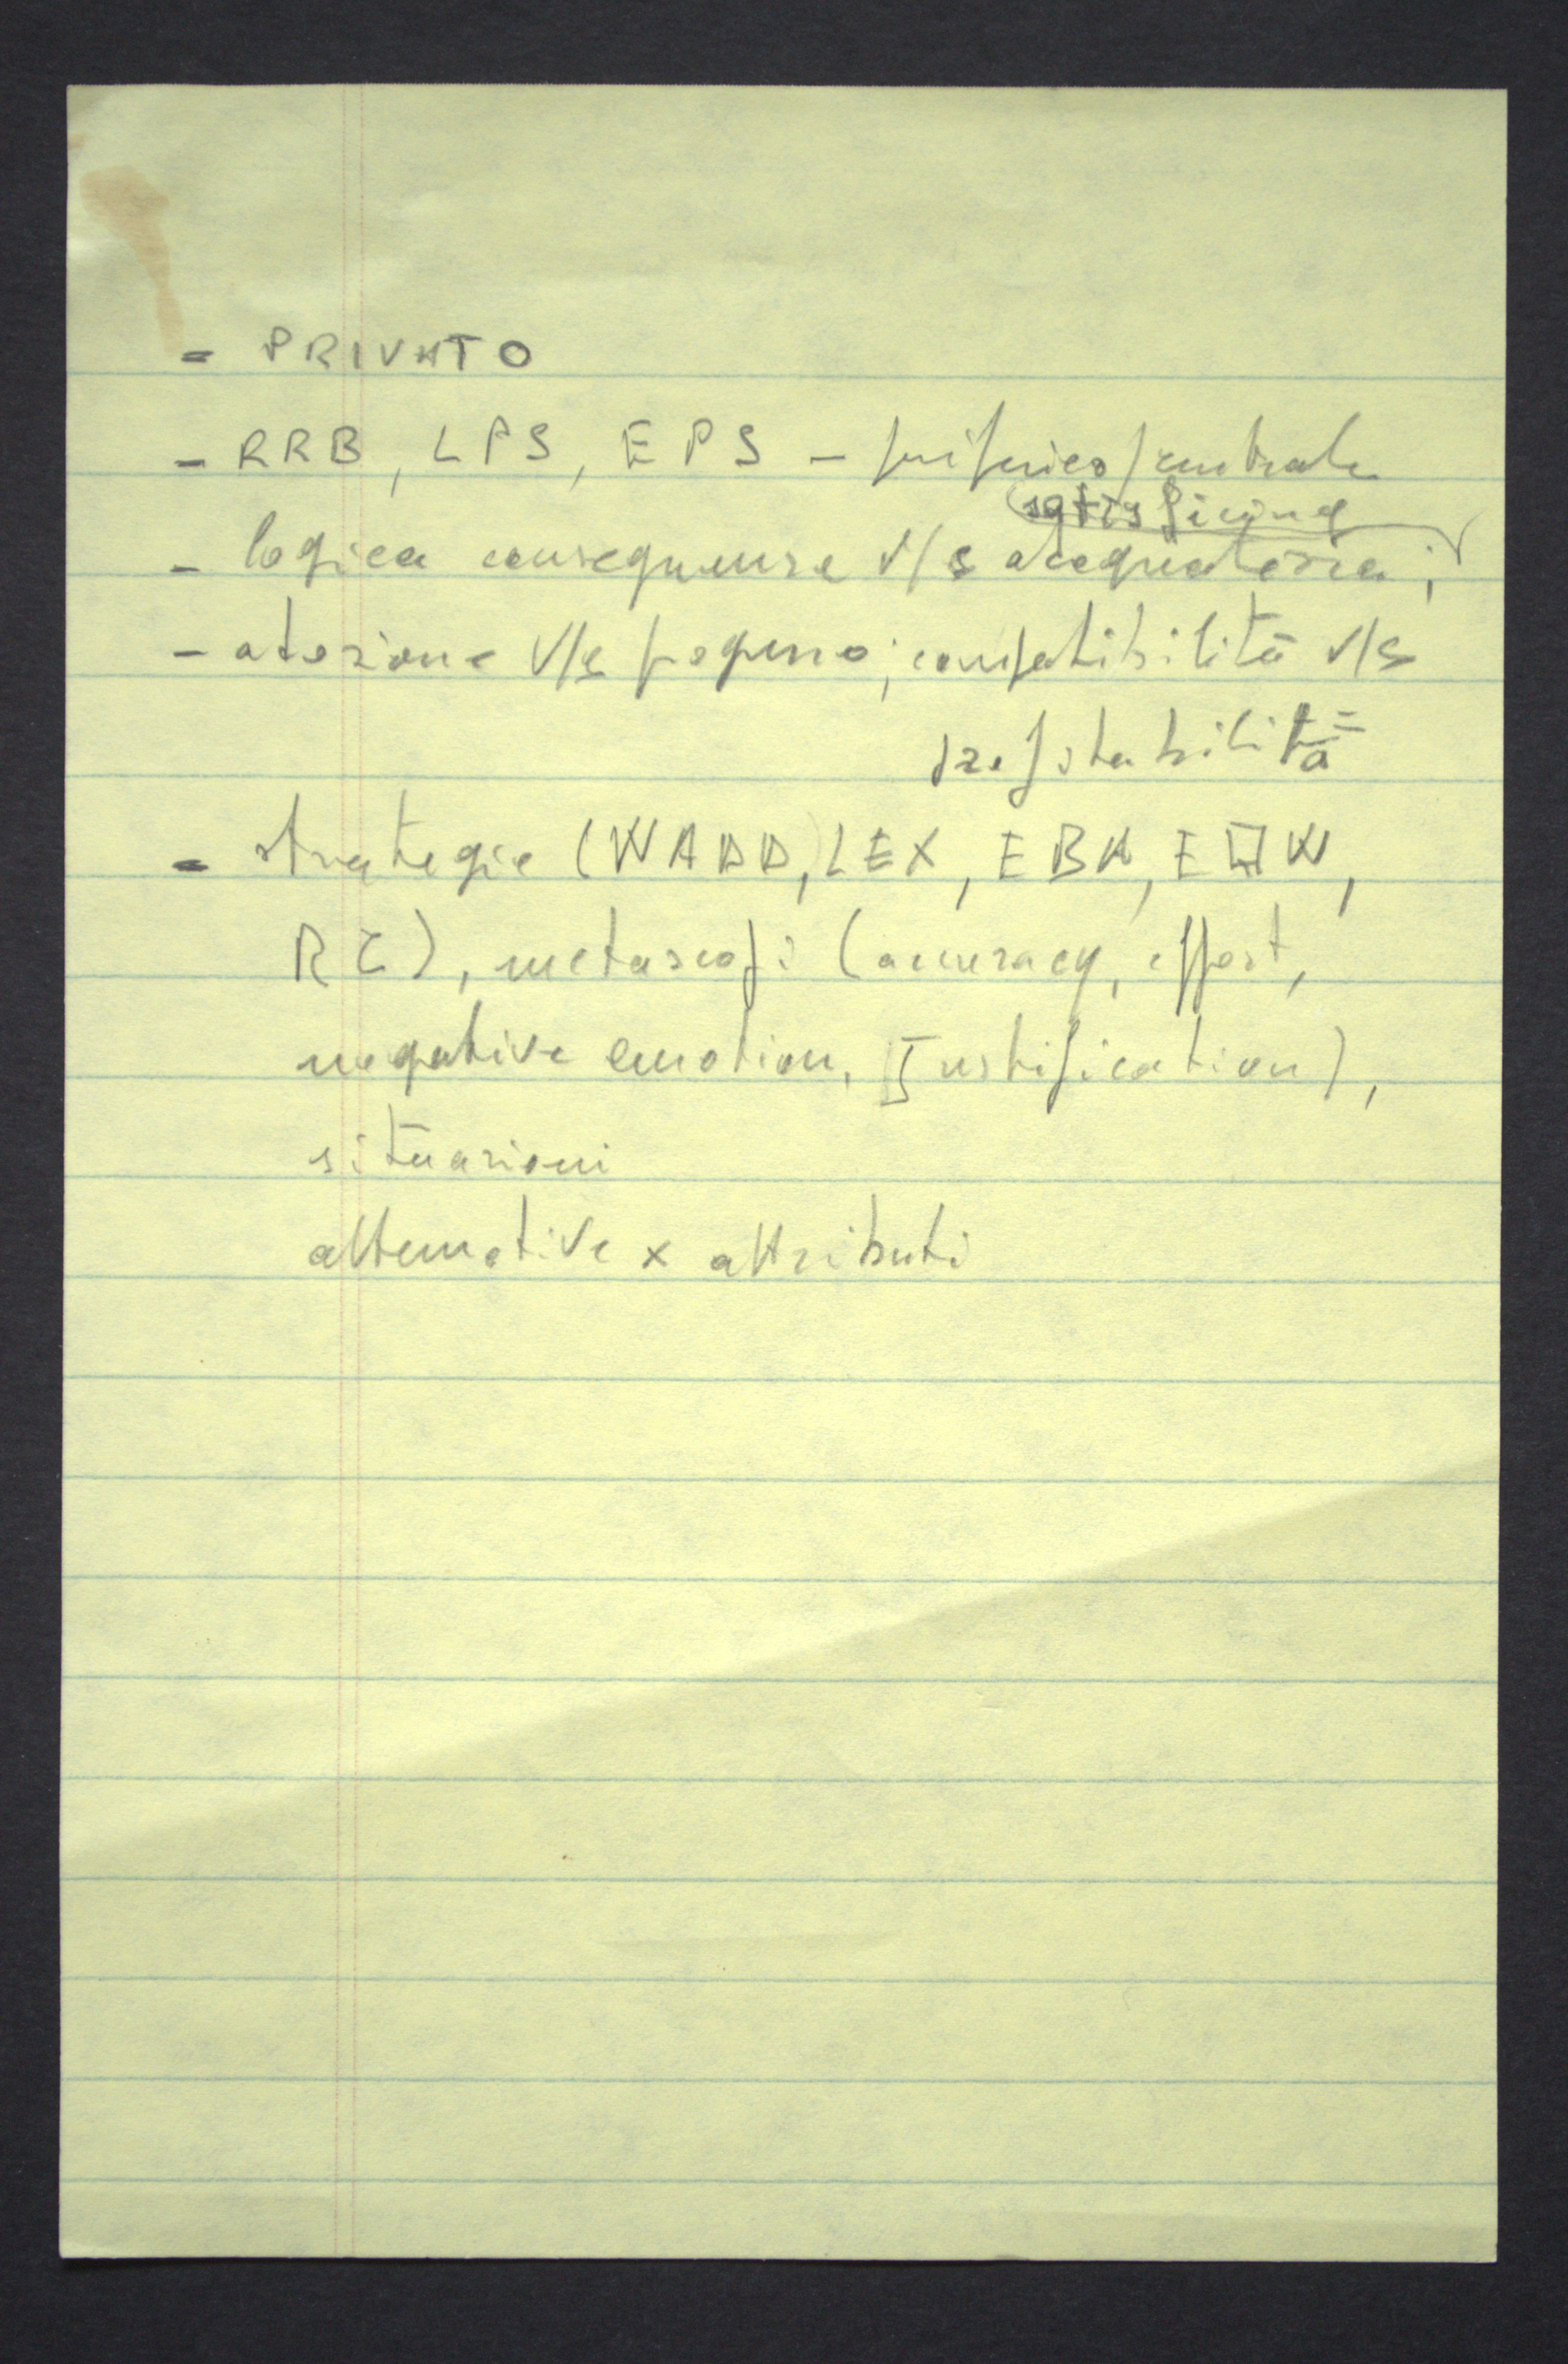 - PRIVATO
- RRB, LPS, EPS - periferico/centrale
satisficing
- logica conseguenze v/s adeguatezza;
- adozione v/s impegno; compatibilità v/s
accettabilità
- strategie (WADD, LEX, EBA, EQW,
RC), metascopi (accuracy, effort,
negative emotion, Justification),
situazioni
alternative x attributi